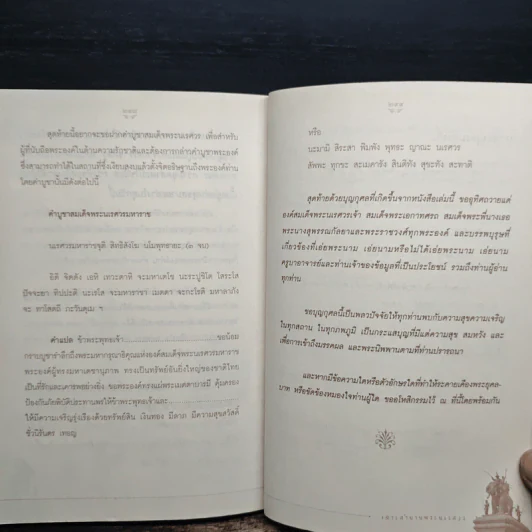 สุดท้ายนี้อยากจะขอฝากคำบูชาสมเด็จพระนเรศวร เพื่อสำหรับ
ผู้ที่นับถือพระองค์ในด้านความรักชาติและต้องการกล่าวคำบูชาพระองค์
ซึ่งสามารถทำได้ในสถานที่ซึ่งเงียบสงบแล้วตั้งจิตอธิษฐานถึงพระองค์ท่าน
โดยคำบูชานั้นมีดังต่อไปนี้
คำบูชาสมเด็จพระนเรศวรมหาราช
นเรศวรมหาราชชุติ สิทธิสังโฆ นโมพุทธายะ (๓ จบ)
อิติ จิตตัง เอหิ เทวะตาหิ จะมหาเตโช นะระปูชิโต โสระโส
ปัจจะยา ทิปะปะติ นะเรโส จะมหาราชา เมตตา จะกะโรติ มหาลาภัง
จะ ทาโสตถี ภะวันตุเม ฯ
คำแปล ข้าพระพุทธเจ้า ขอน้อม
กราบบูชารำลึกถึงพระมหากรุณาธิคุณแห่งองค์สมเด็จพระนเรศวรมหาราช
พระองค์ผู้ทรงมหาเดชานุภาพ ทรงเป็นทรัพย์อันยิ่งใหญ่ของชาติไทย
เป็นที่รักและเคารพอย่างยิ่ง ขอพระองค์ทรงแผ่พระเมตตาบารมี คุ้มครอง
ป้องกันภัยพิบัติประทานพรให้ข้าพระพุทธเจ้าและ
ให้มีความเจริญรุ่งเรืองด้วยทรัพย์สิน เงินทอง มีลาภ มีความสุขสวัสดิ์
ชั่วนิรันดร เทอญ
หรือ
นะมามิ สิระสา พิมพัง พุทธะ ญาณะ นเรศวะ
สัพพะ ทุกขะ สะเมตารัง สินติทัง สุขะทัง สะทาติ
สุดท้ายด้วยบุญกุศลที่เกิดขึ้นจากหนังสือเล่มนี้ ขออุทิศถวายแด่
องค์สมเด็จพระนเรศวรเจ้า สมเด็จพระเอกาทศรถ สมเด็จพระพี่นางเธอ
พระนางสุพรรณกัลยาและพระราชวงศ์ทุกพระองค์ และบรรพบุรุษที่
เกี่ยวข้องที่เอ่ยพระนาม เอ่ยนามหรือไม่ได้เอ่ยพระนาม เอ่ยนาม
ครูบาอาจารย์และท่านเจ้าของข้อมูลที่เป็นประโยชน์ รวมถึงท่านผู้อ่าน
ทุกท่าน
ขอบุญกุศลนี้เป็นพลวปัจจัยให้ทุกท่านพบกับความสุขความเจริญ
ในทุกสถาน ในทุกภพภูมิ เป็นกระแสบุญที่มีแต่ความสุข สมหวัง และ
เพื่อการเข้าถึงมรรคผล และพระนิพพานตามที่ท่านปรารถนา
และหากมีข้อความใดหรือตัวอักษรใดที่ทำให้ระคายเคืองพระยุคล-
บาท หรือขัดข้องหมองใจท่านผู้ใด ขออโหสิกรรมไว้ ณ ที่นี้โดยพร้อมกัน